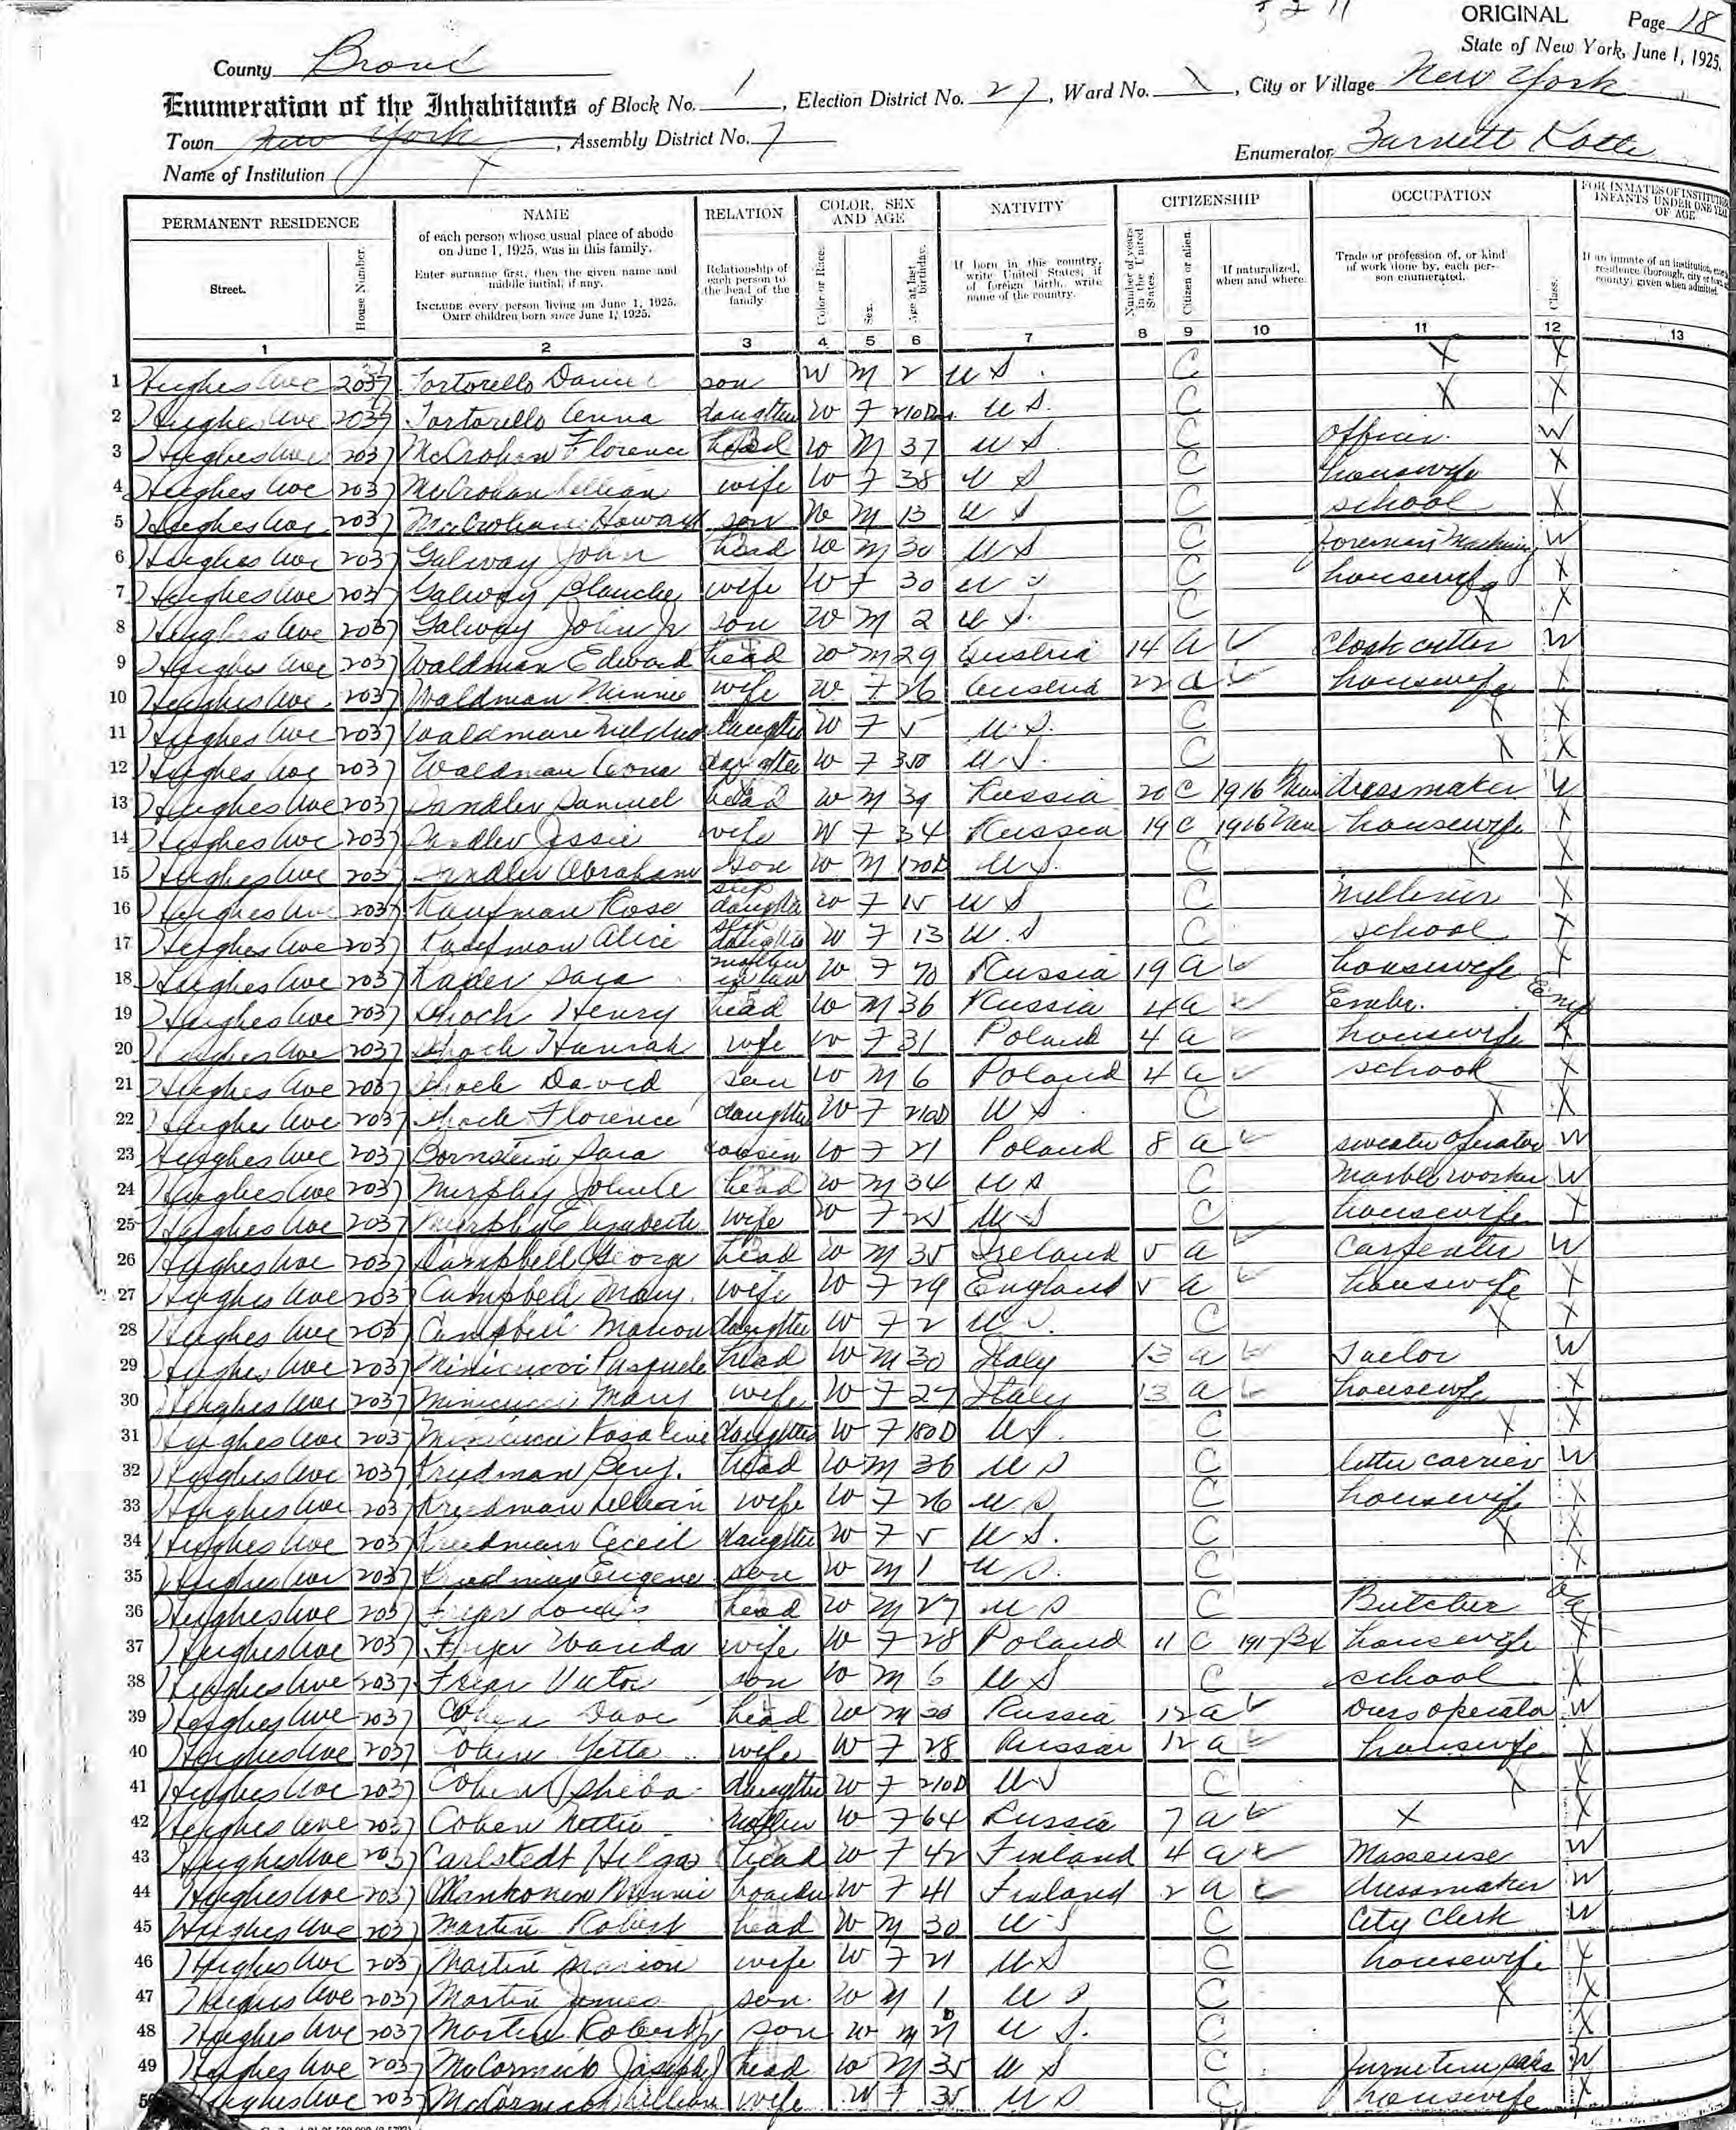 ORIGINAL Page 18
State of New York, June 1, 1925.
County Bronx
Enumeration of the Inhabitants of Block No. 1, Election District No. 27, Ward No. X, City or Village New York
Town New York, Assembly District No. 7
Enumerator
Name of Institution X
PERMANENT RESIDENCE NAME RELATION COLOR, SEX AND AGE NATIVITY CITIZENSHIP OCCUPATION FOR INMATES OF INSTITUTIONS INFANTS UNDER ONE YEAR OF AGE
Street. House Number. of each person whose usual place of abode on June 1, 1925, was in this family. Enter surname first, then the given name and middle initial, if any. INCLUDE every person living on June 1, 1925. OMIT children born since June 1, 1925. Relationship of each person to the head of the family Color or Race. Sex. Age at last birthday. If born in this country, write United States; if of foreign birth, write name of the country. Number of years in the United States. Citizen or alien. If naturalized, when and where. Trade or profession of, or kind of work done by, each person enumerated. Class. If an inmate of an institution,
1 2 3 4 5 6 7 8 9 10 11 12 13
1 Hughes Ave 2037 Tortorello Daniel son W M 2 U S. C X X
2 Hughes Ave 2037 Tortorello Anna daughter W F 210D U S. C X X
3 Hughes Ave 2037 McCrohan Florence head W M 37 U S C officer W
4 Hughes Ave 2037 McCrohan Lillian wife W F 38 U S C housewife X
5 Hughes Ave 2037 McCrohan Howard son W M 13 U S C school X
6 Hughes Ave 2037 Galway John head W M 30 U S C foreman W
7 Hughes Ave 2037 Galway Blanche wife W F 30 U S C housewife X
8 Hughes Ave 2037 Galway John Jr son W M 2 U S. C X X
9 Hughes Ave 2037 Waldman Edward head W M 29 Austria 14 a Cloak cutter W
10 Hughes Ave 2037 Waldman Minnie wife W F 26 Austria 22 a housewife X
11 Hughes Ave 2037 Waldman daughter W F 5 U.S. C X X
12 Hughes Ave 2037 Waldman daughter W F U.S. C X X
13 Hughes Ave 2037 Sandler Samuel head W M 39 Russia 20 C 1916 dressmaker W
14 Hughes Ave 2037 Sandler Jessie wife W F 34 Russia 19 C 1916 housewife X
15 Hughes Ave 2037 Sandler Abraham son W M 120D U S. C X X
16 Hughes Ave 2037 Kaufman Rose step daughter W F 15 U S C X
17 Hughes Ave 2037 Kaufman Alice step daughter W F 13 U.S C school X
18 Hughes Ave 2037 Sara mother in law W F 70 Russia 19 a housewife X
19 Hughes Ave 2037 Henry head W M 36 Russia 4 a Embr. Emp
20 Hughes Ave 2037 Hannah wife W F 31 Poland 4 a housewife X
21 Hughes Ave 2037 David son W M 6 Poland 4 a school X
22 Hughes Ave 2037 Florence daughter W F 210D U S. C X X
23 Hughes Ave 2037 Bornstein Sara cousin W F 21 Poland 8 a sweater operator W
24 Hughes Ave 2037 Murphy John head W M 34 U S C Marble worker W
25 Hughes Ave 2037 Murphy Elizabeth wife W F 25 U S C housewife X
26 Hughes Ave 2037 Campbell head W M 35 Ireland 5 a Carpenter W
27 Hughes Ave 2037 Campbell Mary. wife W F 29 England 5 a housewife X
28 Hughes Ave 2037 Campbell Marion daughter W F 2 U S. C X X
29 Hughes Ave 2037 Minicucci Pasquale head W M 30 Italy 13 a Tailor W
30 Hughes Ave 2037 Minicucci Mary wife W F 27 Italy 13 a housewife X
31 Hughes Ave 2037 Minicucci Rosaline daughter W F 180D U S. C X X
32 Hughes Ave 2037 Friedman Benj. head W M 36 U S C letter carrier W
33 Hughes Ave 2037 Friedman Lillian wife W F 26 U S C housewife X
34 Hughes Ave 2037 Friedman Cecil daughter W F 5 U S. C X X
35 Hughes Ave 2037 Friedman Eugene son W M 1 U S. C X
36 Hughes Ave 2037 Friar Louis head W M 27 U S C Butcher
37 Hughes Ave 2037 Wanda wife W F 28 Poland 11 C 1917 housewife X
38 Hughes Ave 2037 Friar Victor son W M 6 U S C school X
39 Hughes Ave 2037 Cohen Dave head W M 30 Russia 12 a Dress operator W
40 Hughes Ave 2037 Cohen Yetta wife W F 28 Russia 12 a housewife X
41 Hughes Ave 2037 Cohen Sheba daughter W F 210D U S C X X
42 Hughes Ave 2037 Cohen mother W F 64 Russia 7 a X X
43 Hughes Ave 2037 Carlstedt Hilga head W F 42 Finland 4 a Masseuse W
44 Hughes Ave 2037 Minnie boarder W F 41 Finland 2 a dressmaker W
45 Hughes Ave 2037 Martin Robert head W M 30 U S C City Clerk W
46 Hughes Ave 2037 Martin Marion wife W F 21 U S C housewife X
47 Hughes Ave 2037 Martin James son W M 1 U S C X
48 Hughes Ave 2037 Martin Robert Jr son W M U S. C X
49 Hughes Ave 2037 McCormick Joseph head W M 35 U S C furniture W
50 Hughes Ave 2037 McCormack Lillian wife W F 35 U S C housewife X